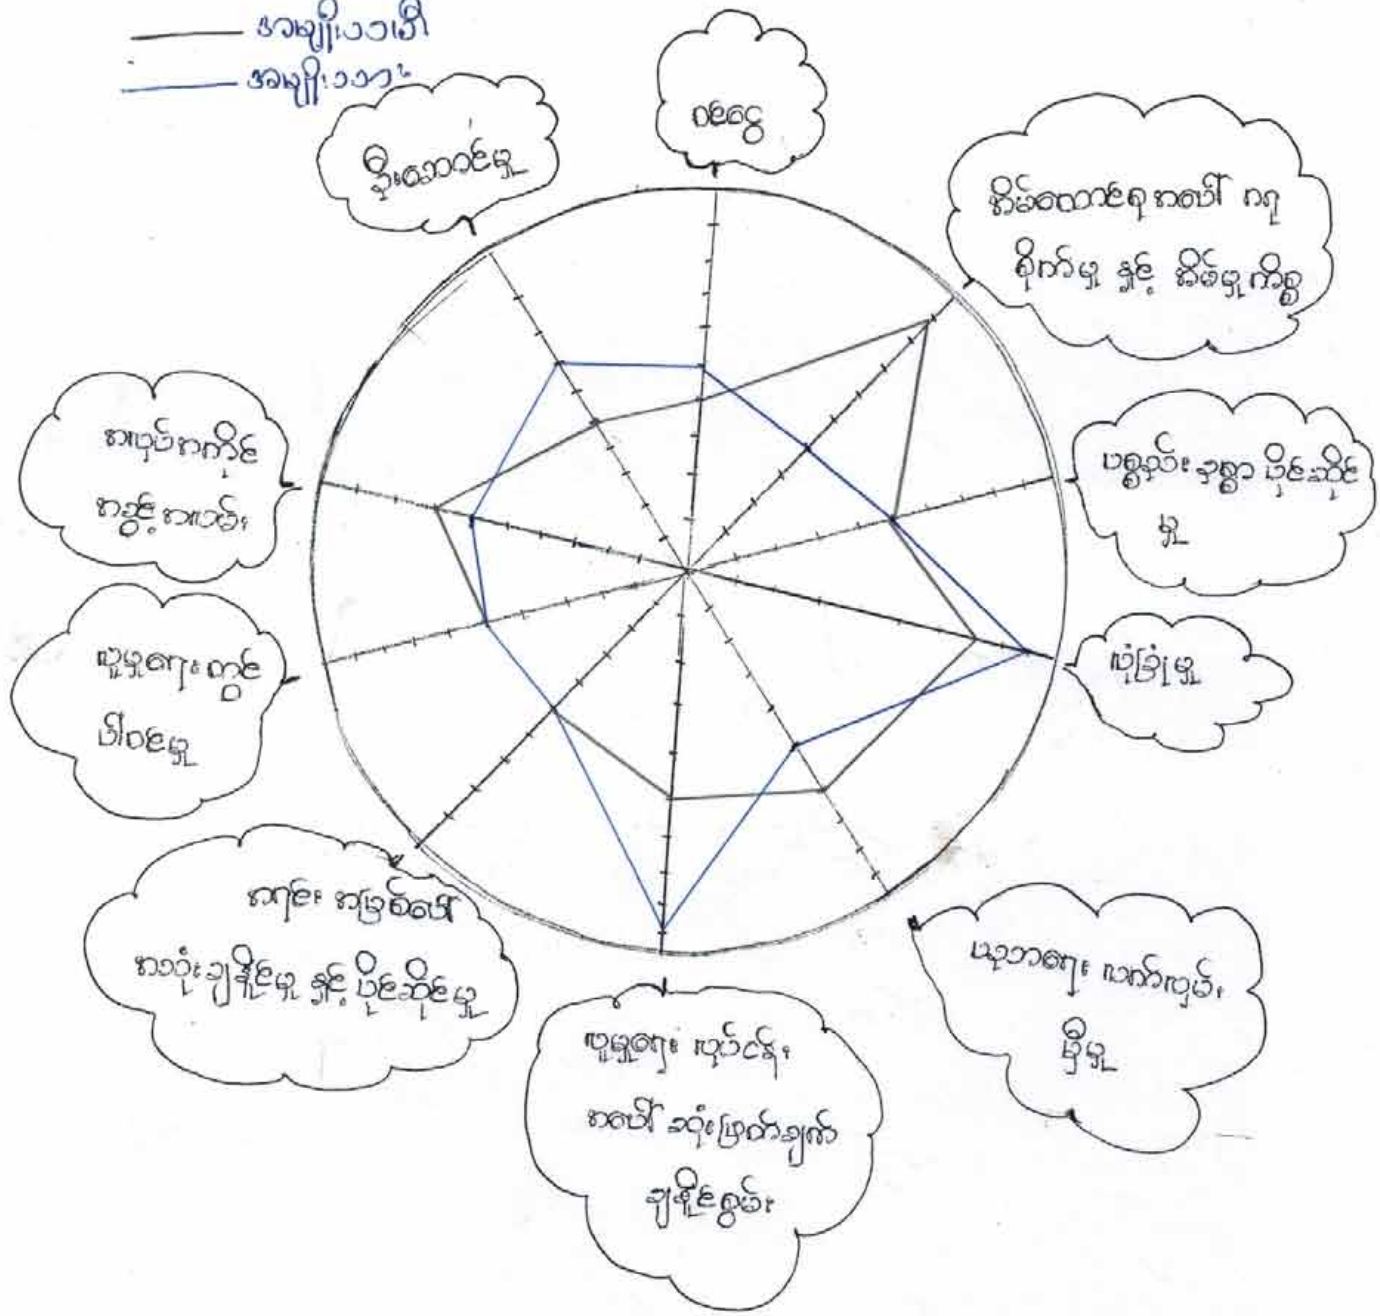 အမျိုးသမီး
အမျိုးသား
ဝင်ငွေ
ဦးဆောင်မှု
အိမ်ထောင်စုအပေါ် ဂရု
စိုက်မှု နှင့် အိမ်မှုကိစ္စ
ပစ္စည်းဥစ္စာ ပိုင်ဆိုင်
မှု
လုံခြုံမှု
ပညာရေး လက်လှမ်း
မှီမှု
လူမှုရေး လုပ်ငန်း
အပေါ် ဆုံးဖြတ်ချက်
ချနိုင်စွမ်း
အရင်းအမြစ်ပေါ်
အသုံးချနိုင်မှု နှင့် ပိုင်ဆိုင်မှု
လူမှုရေးတွင်
ပါဝင်မှု
အလုပ်အကိုင်
အခွင့်အလမ်း